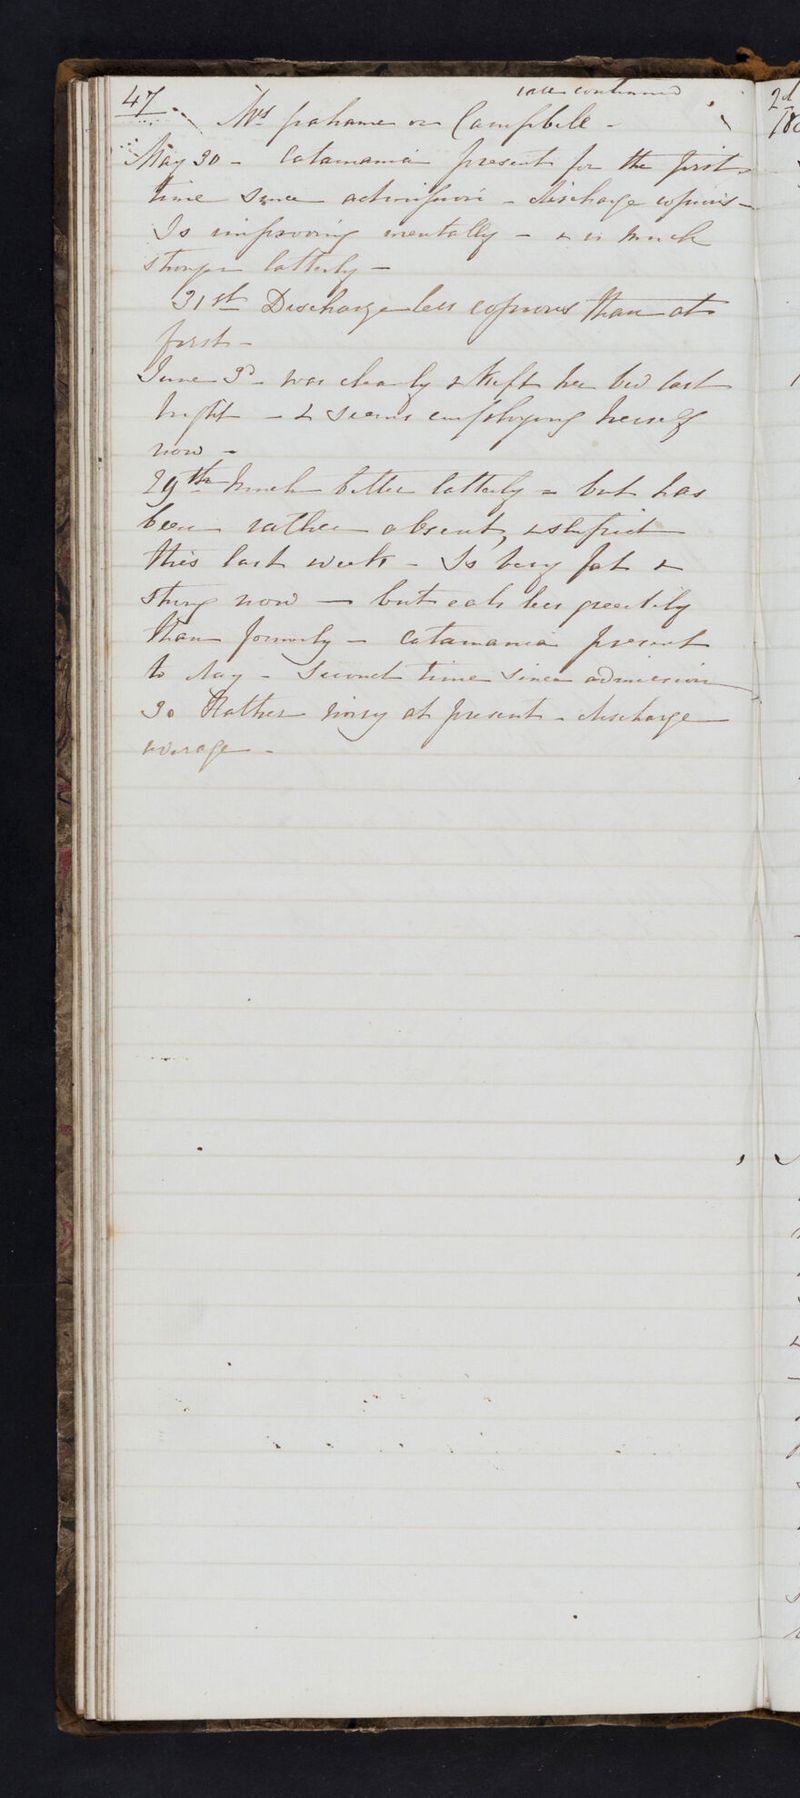 47
case continued
Mrs Grahame or Campbell -
May 30 - Catamania present for the first
time since admission - discharge copious -
Is improving mentally - & is much
stronger latterly -
31st Discharge less copious than at
first -
June 3d - was cleanly & kept her bed last
night - & seems employing herself
now -
29th Much better latterly - but has
been rather absent, & stupid
this last week - Is very fat &
strong now - but eats less greedily
than formerly - Catamania present
to day - Second time since admission
30 Rather noisy at present - discharge
average -
2d